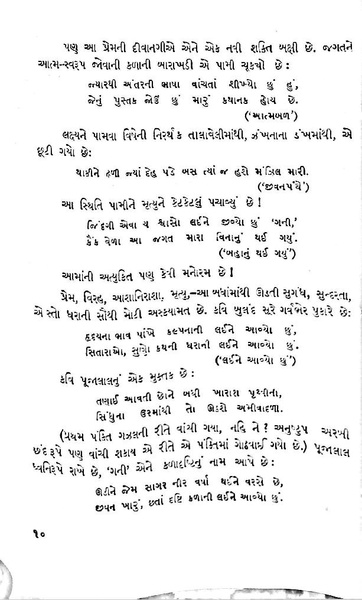 પણ આ પ્રેમની દીવાનગીએ એને એક નવી શક્તિ બક્ષી છે. જગતને
આત્મ-સ્વરૂપ જોવાની કળાની બારાખડી એ પામી ચૂક્યો છે :
જ્યારથી અંતરની ભાષા વાંચતાં શીખ્યો છું હું,
જેનું પુસ્તક જોઉં છું મારું કથાનક હોય છે.
('આત્મબળ')
લક્ષ્યને પામવા વિષેની નિરર્થક તાલાવેલીમાંથી, ઝંખનાના ડંખમાંથી, એ
છૂટી ગયો છે:
થાકીને ઢળી જ્યાં દેહ પડે બસ ત્યાં જ હશે મંઝિલ મારી.
('જીવનપંથે')
આ સ્થિતિ પામીને મૃત્યુને કેટકેટલું પચાવ્યું છે !
જિંદગી એવા ય શ્વાસો લઈને જીવ્યો છું 'ગની,'
કૈંક વેળા આ જગત મારા વિનાનું થઈ ગયું.
('બહાનું થઈ ગયું')
આમાંની અત્યુક્તિ પણ કેવી મનોરમ છે !
પ્રેમ, વિરહ, આશાનિરાશા, મૃત્યુ—આ બધાંમાંથી ઊઠતી સુગંધ, સુન્દરતા,
એ સ્તો ધરાની સૌથી મોટી અસ્કયામત છે. કવિ બુલંદ સૂરે ગર્વભેર પુકારે છે:
હૃદયના ભાવ પાંખે કલ્પનાની લઈને આવ્યો છું,
સિતારાઓ, સુણો કથની ધરાની લઈને આવ્યો છું.
('લઈને આવ્યો છું')
કવિ પૂજાલાલનું એક મુક્તક છે :
તણાઈ આવતી છોને બધી ખારાશ પૃથ્વીના,
સિંધુના ઉરમાંથી તો ઊઠશે અમીવાદળી.
(પ્રથમ પંક્તિ ગઝલની રીતે વાંચી ગયા, નહિ ને ? અનુષ્ટુપ અરબી
છંદરૂપે પણ વાંચી શકાય એ રીતે એ પંક્તિમાં ગોઠવાઈ ગયો છે.) પૂજાલાલ
ધ્વનિરૂપે રાખે છે, 'ગની' એને કળાદૃષ્ટિનું નામ આપે છે :
ઊઠીને જેમ સાગર નીર વર્ષા થઈને વરસે છે,
જીવન ખારું, છતાં દૃષ્ટિ કળાની લઈને આવ્યો છું.
૧૦